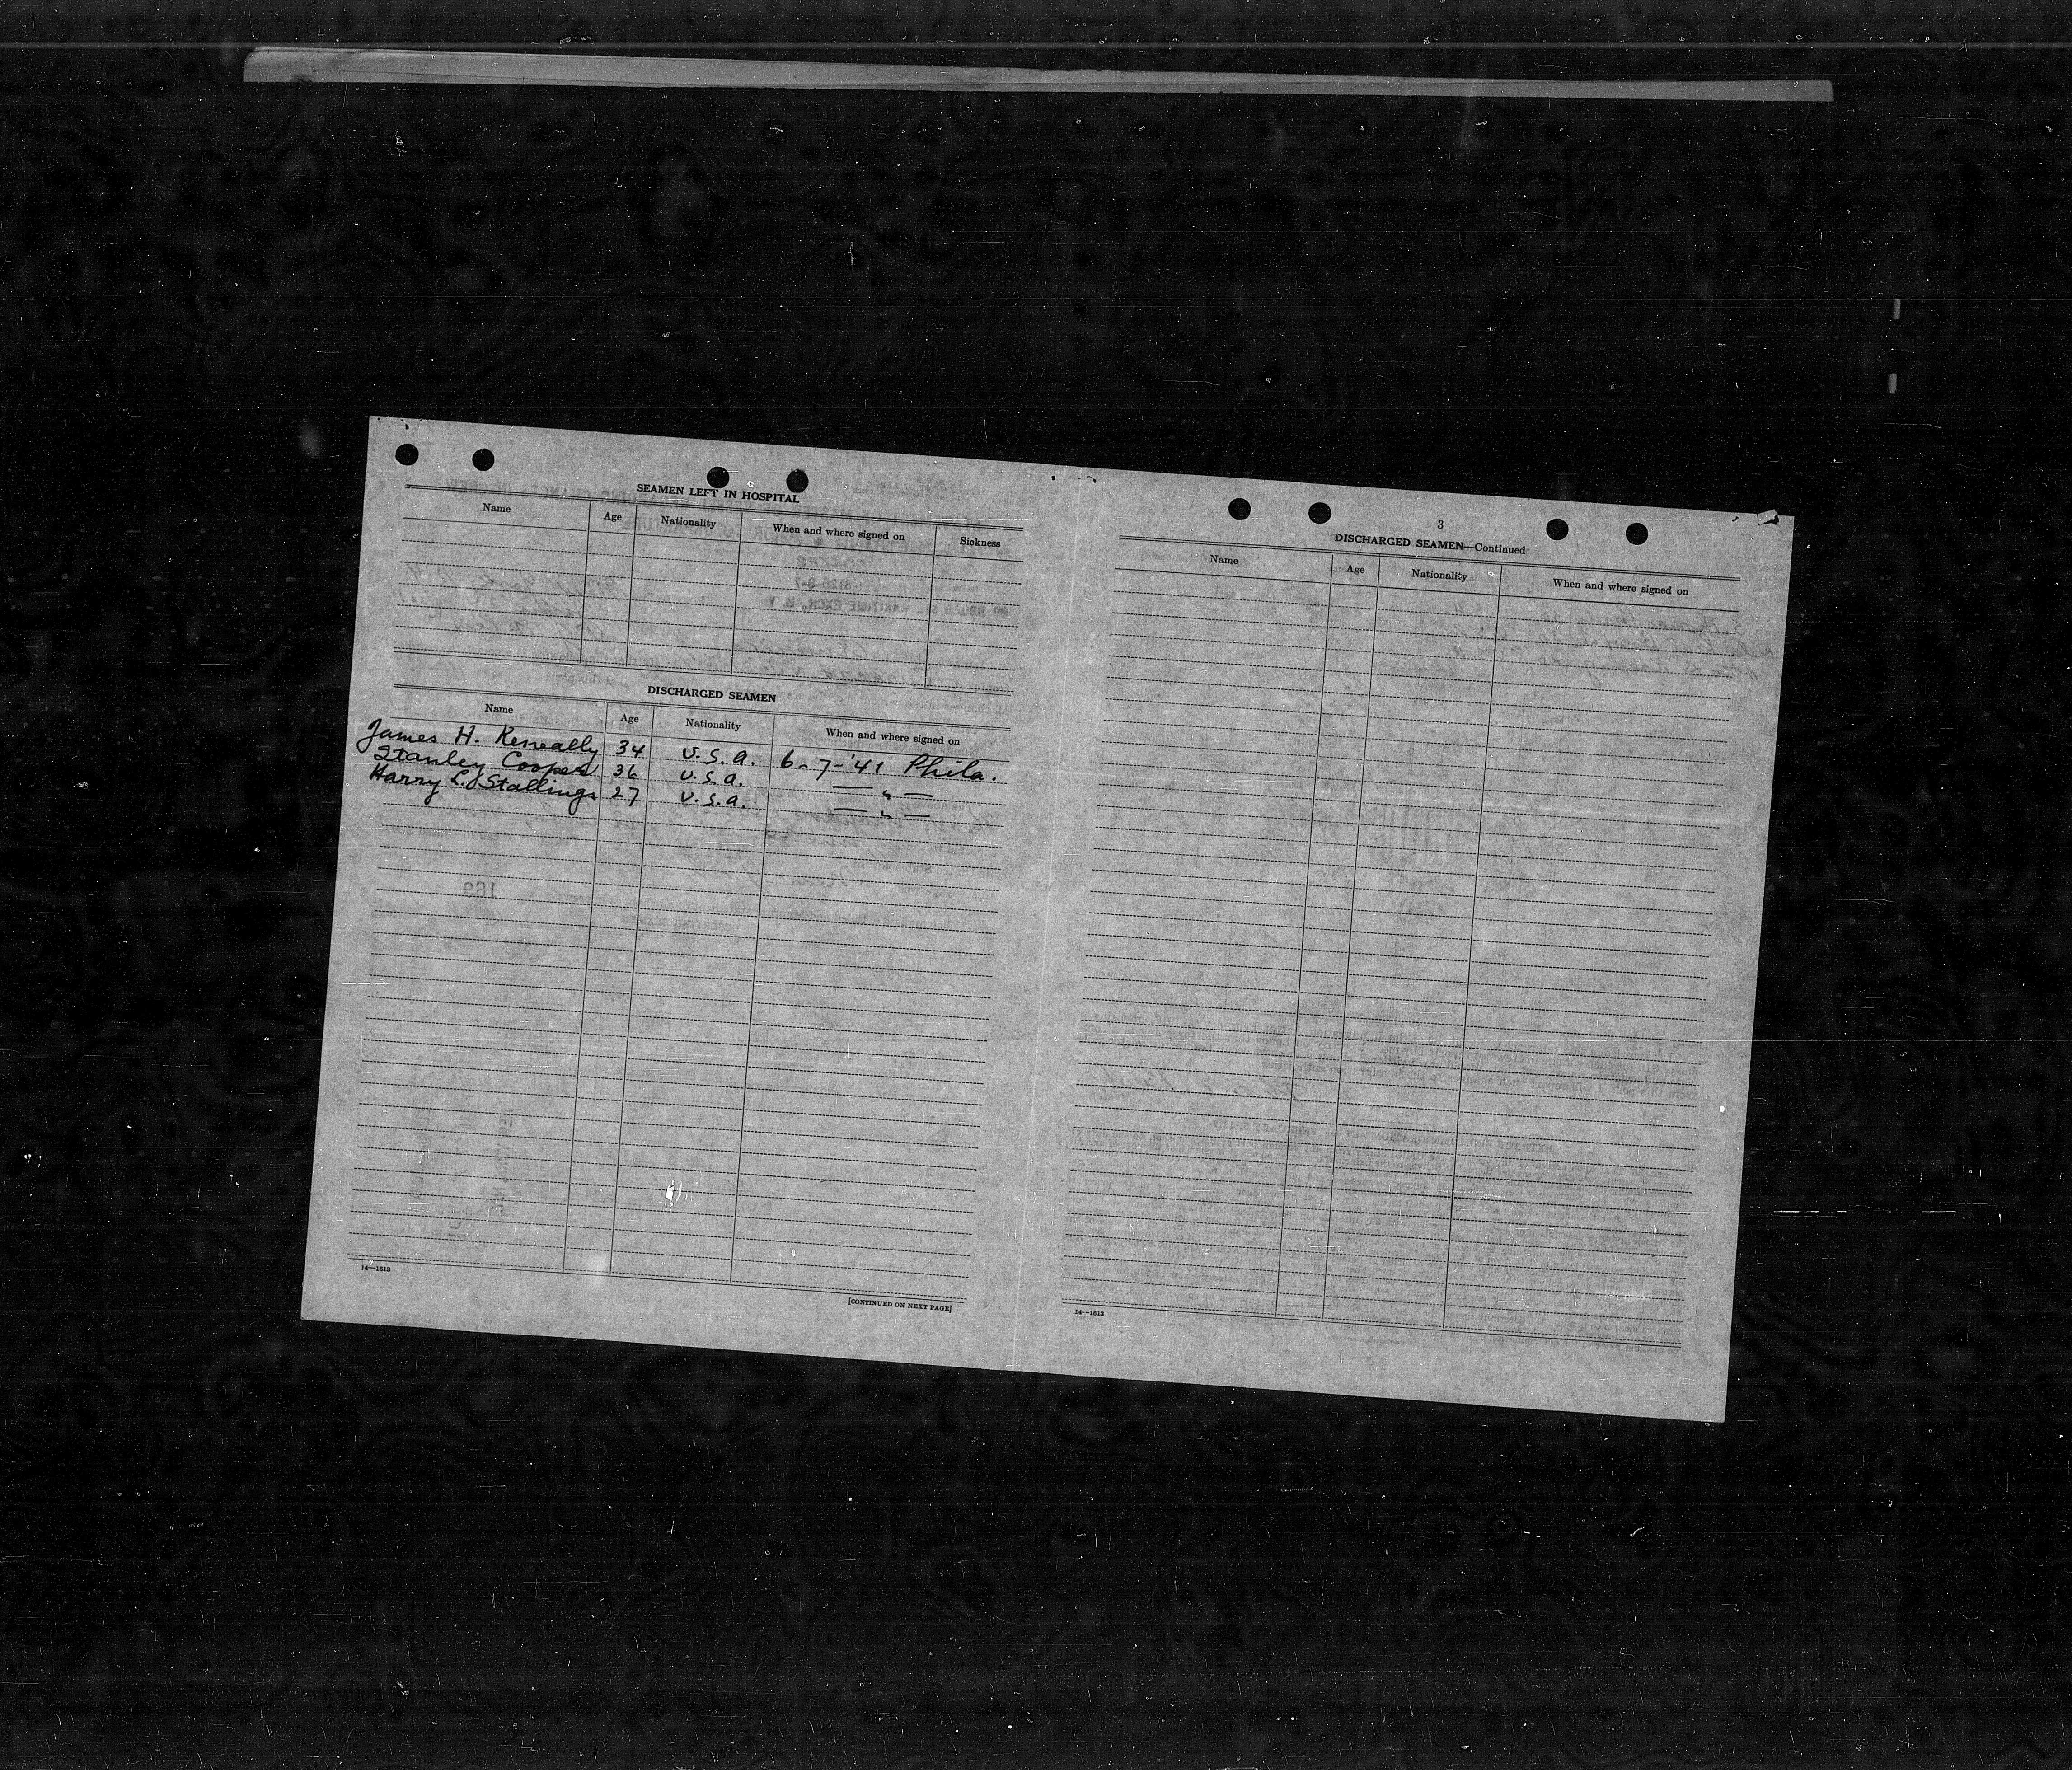 SEAMEN LEFT IN HOSPITAL
Name Age Nationality When and where signed on Sickness
DISCHARGED SEAMEN
Name Age Nationality When and where signed on
James H. Keneally 34 U.S.A. 6-7-'41 Phila.
Stanley Cooper 36 U.S.A. — " —
Harry L. Stallings 27 U.S.A. — " —
14—1613
[CONTINUED ON NEXT PAGE]
3
DISCHARGED SEAMEN—Continued
Name Age Nationality When and where signed on
14—1613